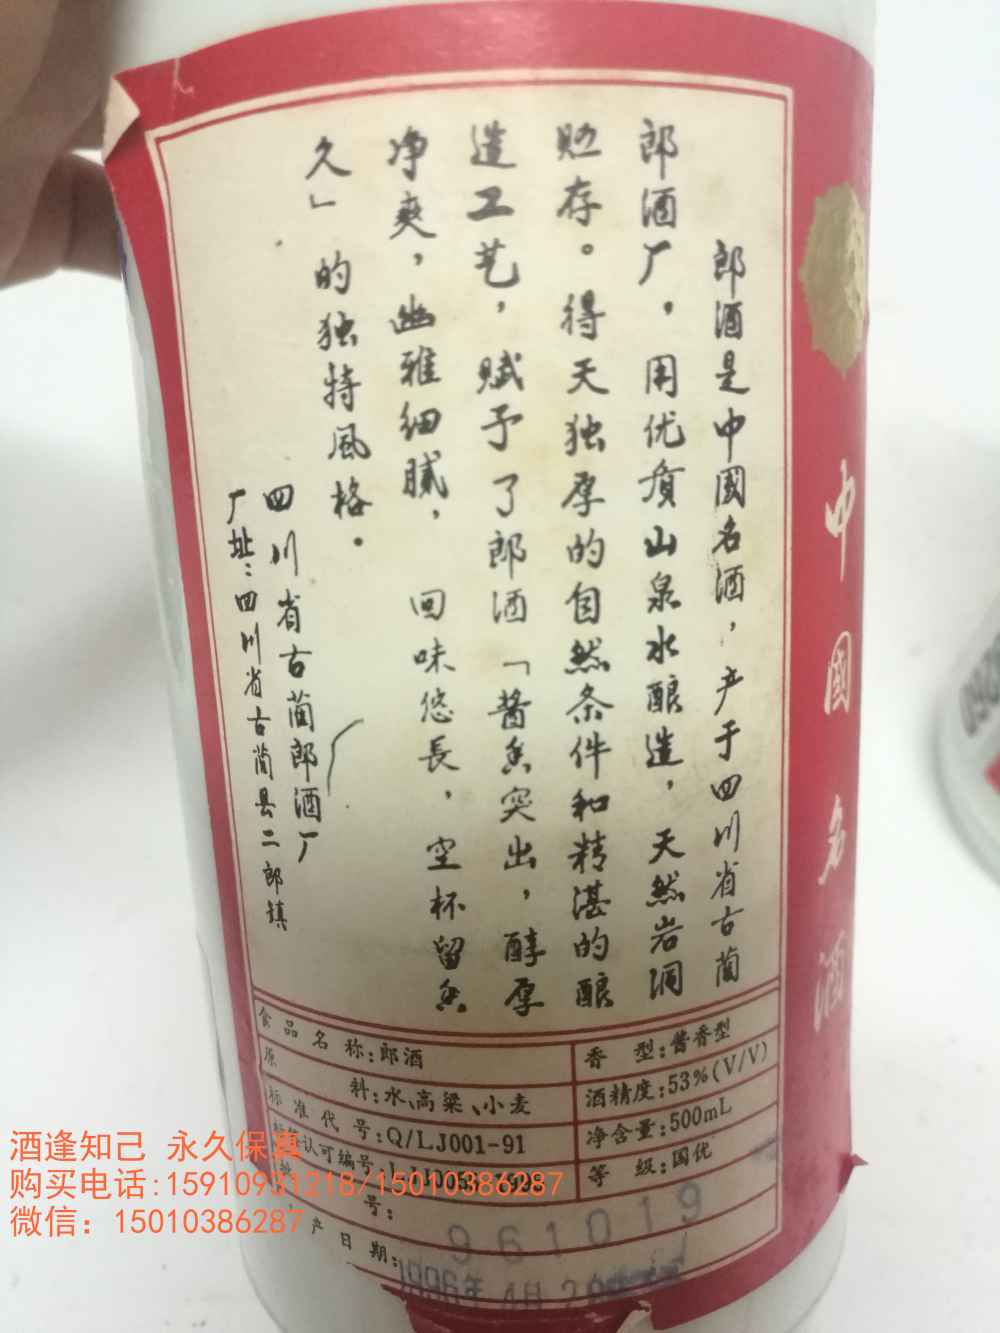 郎酒是中國名酒，产于四川省古蔺
郎酒厂，用优质山泉水酿造，天然岩洞
贮存。得天独厚的自然条件和精湛的酿
造工艺，赋予了郎酒「酱香突出，醇厚
净爽，幽雅细腻，回味悠長，空杯留香
久」的独特風格。
四川省古蔺郎酒厂
厂址：四川省古蔺县二郎镇
中國名酒
食品名称:郎酒
香型:酱香型
原料:水、高粱、小麦
酒精度:53%(V/V)
标准代号:Q/LJ001-91
净含量:500mL
认可编号:
等级:国优
号:
961019
产日期:
1996年4月2
酒逢知己 永久保真
购买电话:15910931218/15010386287
微信：15010386287
0920